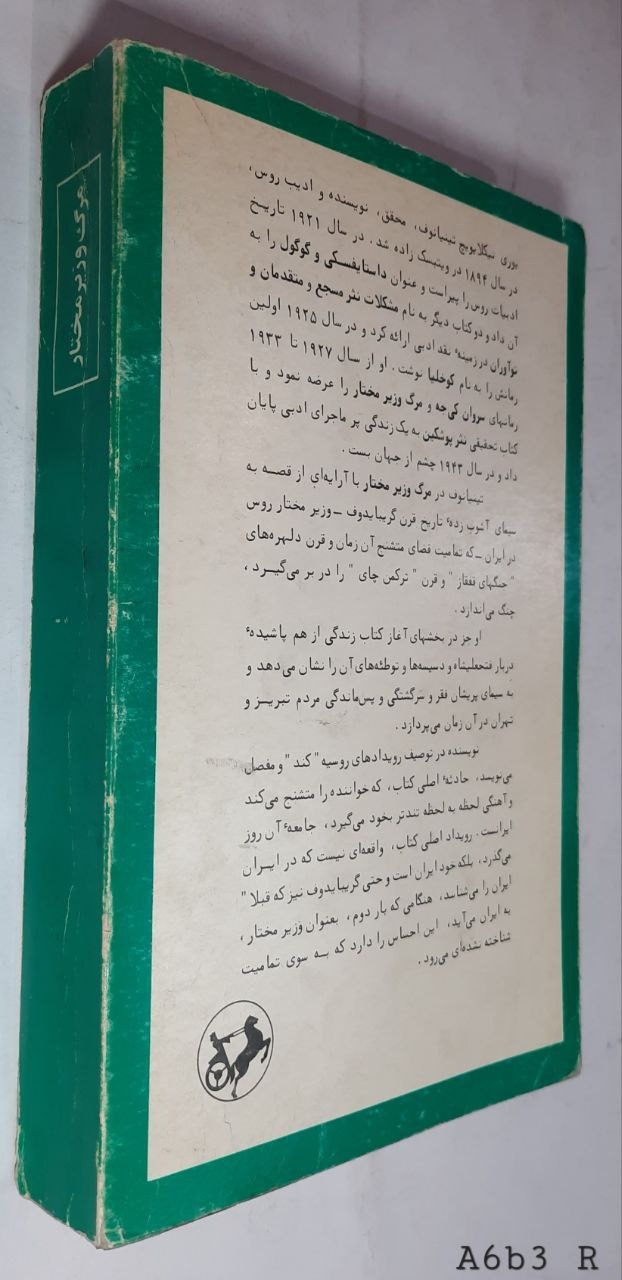 مرگ وزیر مختار
یوری نیکلایویچ تینیانوف، محقق، نویسنده و ادیب روس،
در سال ۱۸۹۴ در ویتبسک زاده شد. در سال ۱۹۲۱ تاریخ
ادبیات روس را پیراست و عنوان داستایفسکی و گوگول را به
آن داد و دو کتاب دیگر به نام مشکلات نثر مسجع و متقدمان و
نوآوران در زمینهٔ نقد ادبی ارائه کرد و در سال ۱۹۲۵ اولین
رمانش را به نام کوخلیا نوشت. او از سال ۱۹۲۷ تا ۱۹۳۳
رمانهای سروان کی‌جه و مرگ وزیر مختار را عرضه نمود و با
کتاب تحقیقی نثر پوشکین به یک زندگی پر ماجرای ادبی پایان
داد و در سال ۱۹۴۳ چشم از جهان بست.
تینیانوف در مرگ وزیر مختار با آرایه‌ای از قصه به
سیمای آشوب زدهٔ تاریخ قرن گریبایدوف – وزیر مختار روس
در ایران – که تمامیت فضای متشنج آن زمان و قرن دلهره‌های
"جنگهای قفقاز" و قرن "ترکمن چای" را در بر می‌گیرد،
چنگ می‌اندازد.
او جز در بخشهای آغاز کتاب زندگی از هم پاشیدهٔ
دربار فتحعلیشاه و دسیسه‌ها و توطئه‌های آن را نشان می‌دهد و
به سیمای پریشان فقر و سرگشتگی و پس‌ماندگی مردم تبریز و
تهران در آن زمان می‌پردازد.
نویسنده در توصیف رویدادهای روسیه "کند" و مفصل
می‌نویسد، حادثهٔ اصلی کتاب، که خواننده را متشنج می‌کند
و آهنگی لحظه به لحظه تندتر بخود می‌گیرد، جامعهٔ آن روز
ایرانست. رویداد اصلی کتاب، واقعه‌ای نیست که در ایران
می‌گذرد، بلکه خود ایران است و حتی گریبایدوف نیز که قبلا "
ایران را می‌شناسد، هنگامی که بار دوم، بعنوان وزیر مختار،
به ایران می‌آید، این احساس را دارد که به سوی تمامیت
شناخته نشده‌ای می‌رود.
A6b3 R